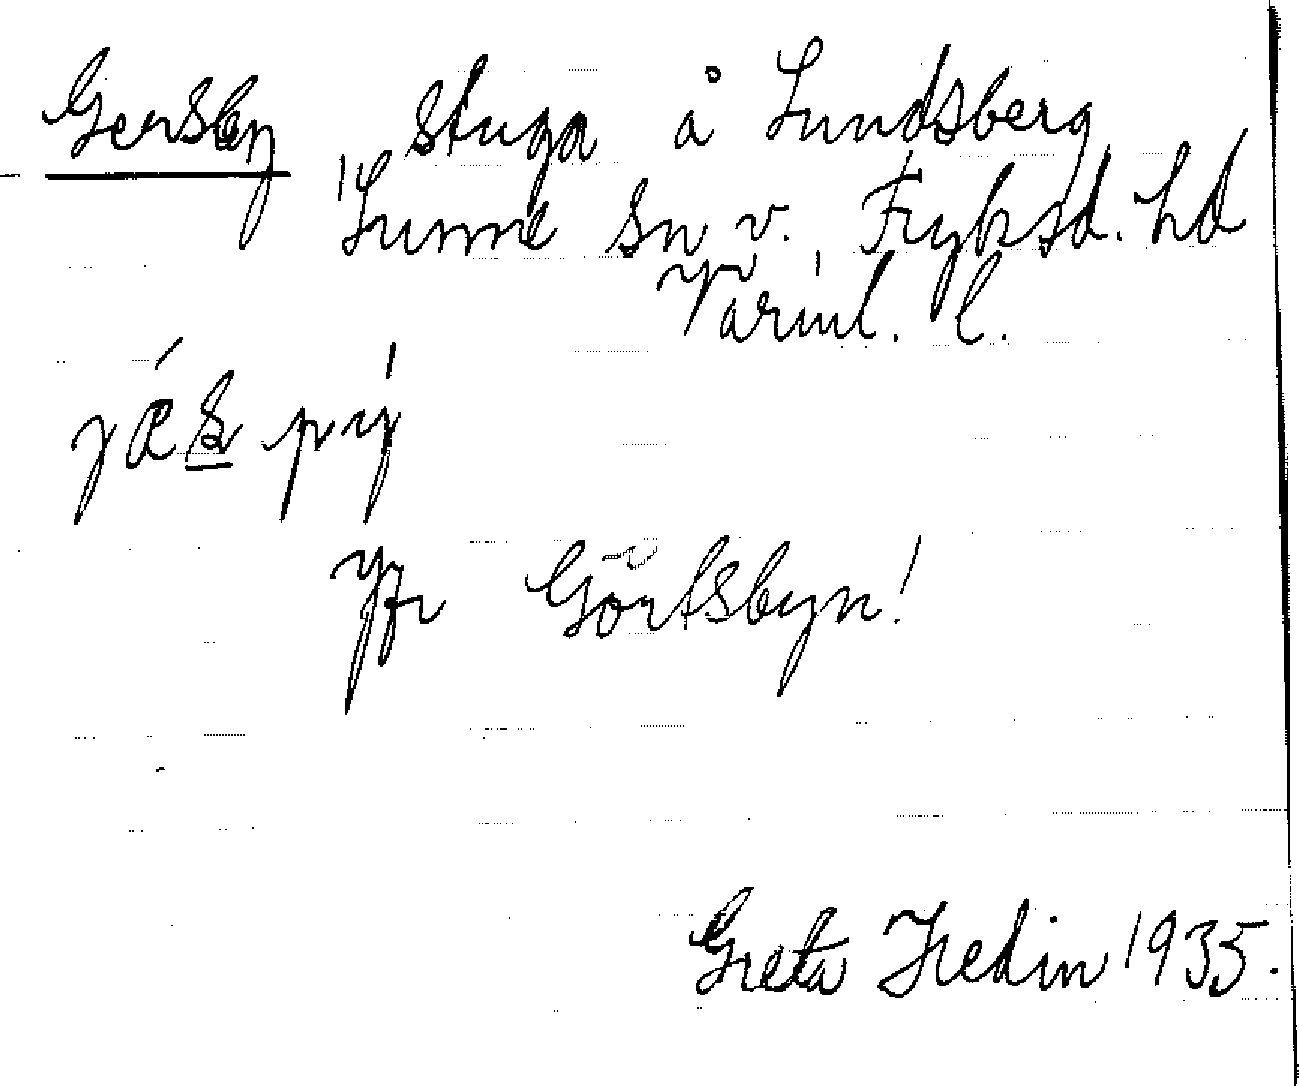 Gersby stuga å Lundsberg
Sunne sn v. Fryksd. hd
Värml. l.
Jfr Görtsbyn!
Greta Hedin 1935.